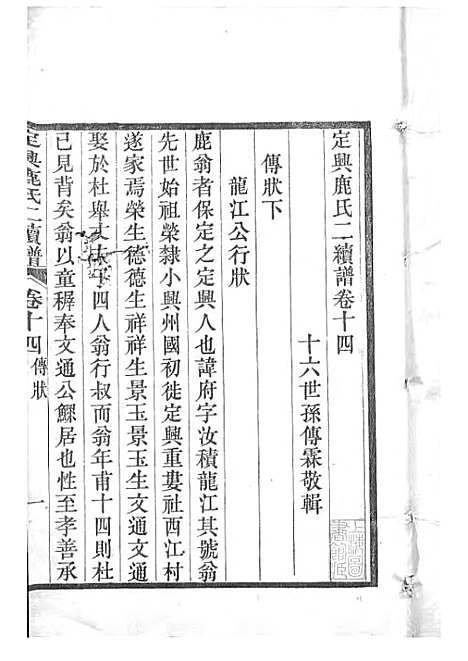 定興鹿氏二續譜卷十四
十六世孫傳霖敬輯
傳狀下
龍江公行狀
鹿翁者保定之定興人也諱府字汝積龍江其號翁
先世始祖榮隸小興州國初徙定興重婁社西江村
遂家焉榮生德德生祥祥生景玉景玉生文通文通
娶於杜舉丈夫子四人翁行叔而翁年甫十四則杜
已見背矣翁以童穉奉文通公鰥居也性至孝善承
定興鹿氏二續譜
卷十四
傳狀
一